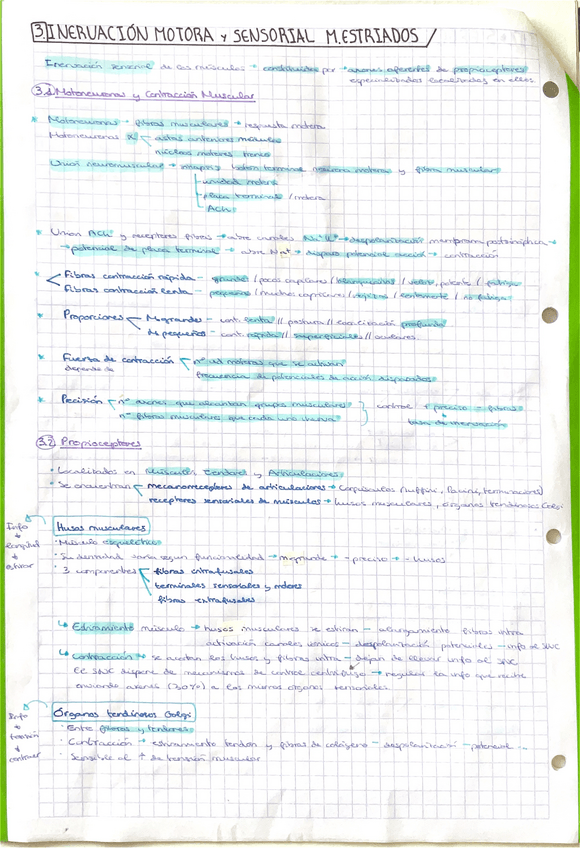 3. INERVACIÓN MOTORA y SENSORIAL M. ESTRIADOS
Inervación sensorial de los músculos → constituidos por → axones aferentes de propioceptores
especializados localizados en ellos
3.1 Motoneuronas y Contracción Muscular
* Motoneuronas → fibras musculares → respuesta motora
Motoneuronas α astas anteriores médula
núcleos motores tronco
Unión neuromuscular → sinapsis botón terminal neurona motora y fibra muscular
unidad motora
placa terminal / motora
ACh
* Unión ACh y receptores fibras → abre canales Na+ K+ → despolarización membrana postsináptica →
→ potencial de placa terminal → abre Na+ → dispara potencial acción → contracción
* Fibras contracción rápida - grande / pocos capilares / blanquecinas / veloz, potente / fatiga
Fibras contracción lenta - pequeñas / muchos capilares / rojizas / constante / no fatiga
* Proporciones M. grandes - cont. lenta // postura // coordinación profunda
M. pequeños - cont. rápida // superficiales // oculares
* Fuerza de contracción nº ud motoras que se activan
depende de frecuencia de potenciales de acción disparados
* Precisión nº axones que alcanzan grupo musculares control + preciso = fibras
nº fibras musculares que cada uno inerva tasa de inervación
3.2 Propioceptores
· Localizados en Músculos, Tendones y Articulaciones
· Se encuentran mecanorreceptores de articulaciones → Corpúsculos (Ruffini, Pacini, terminaciones)
receptores sensoriales de músculos → husos musculares, órganos tendinosos Golgi
Info
longitud
estirar
Husos musculares
· Músculo esquelético
· Su densidad varía según funcionalidad → m. grande → - preciso → - husos
· 3 componentes fibras intrafusales
terminales sensoriales y motores
fibras extrafusales
↳ Estiramiento músculo → husos musculares se estiran - alargamiento fibras intra
activación canales iónicos - despolarización potenciales - info al SNC
↳ Contracción → se acortan los husos y fibras intra → dejan de llevar info al SNC
El SNC dispone de mecanismos de control centrífugo → regular la info que recibe
enviando axones (30%) a los mismos órganos sensoriales
Info
tensión
contraer
Órganos tendinosos Golgi
· Entre fibras y tendones
· Contracción → estiramiento tendón y fibras de colágeno - despolarización - potencial ...
· Sensible al ↑ de tensión muscular